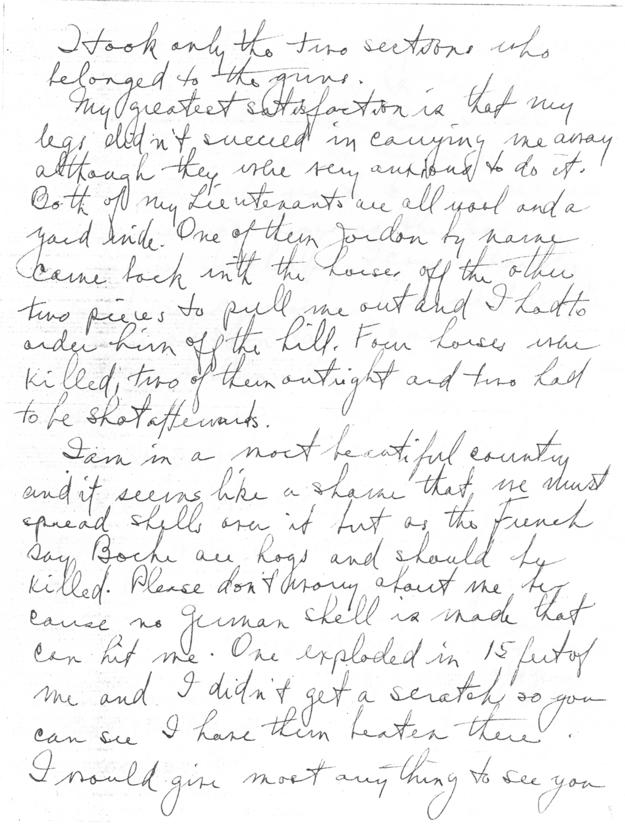 I took only the two sections who
belonged to the guns.
My greatest satisfaction is that my
legs didn't succeed in carrying me away
although they were very anxious to do it.
Both of my Lieutenants are all wool and a
yard wide. One of them Jordon by name
came back with the horses off the other
two pieces to pull me out and I had to
order him off the hill. Four horses were
killed, two of them outright and two had
to be shot afterwards.
I am in a most beautiful country
and it seems like a shame that we must
spread shells over it but as the French
say Boche are hogs and should be
killed. Please don't worry about me be
cause no German shell is made that
can hit me. One exploded in 15 feet of
me and I didn't get a scratch, so you
can see I have them beaten there.
I would give most anything to see you